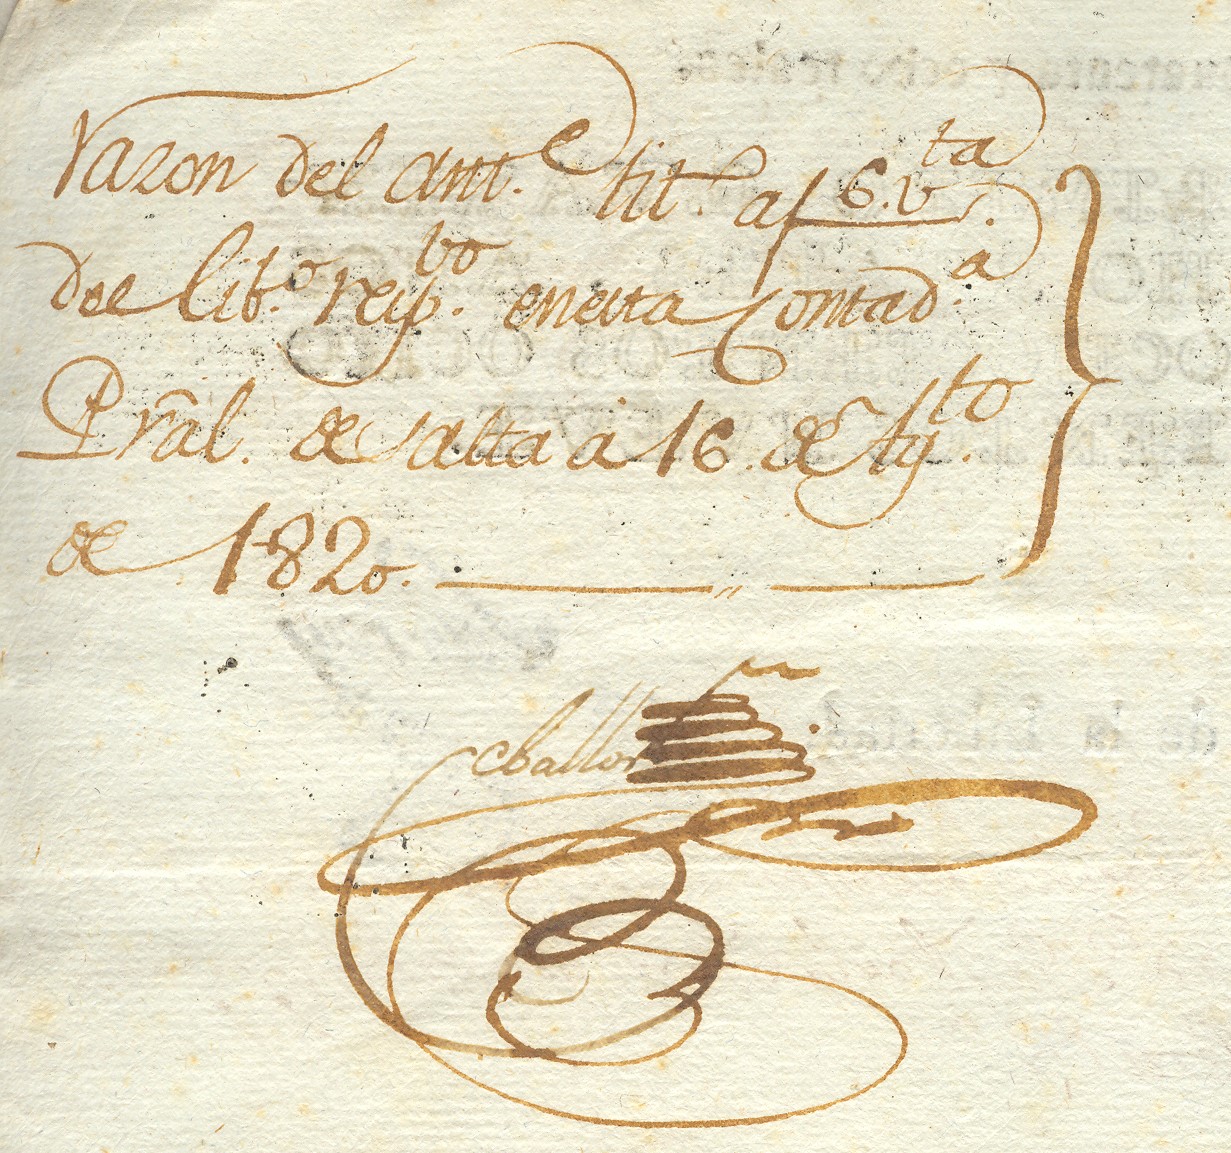 Razon del Ant.e tit.o a f 6. vta
del lib.o resp.vo en esta Contad.a
Pral. de Salta à 16. de Ag.to
de 1820.
Ceballos